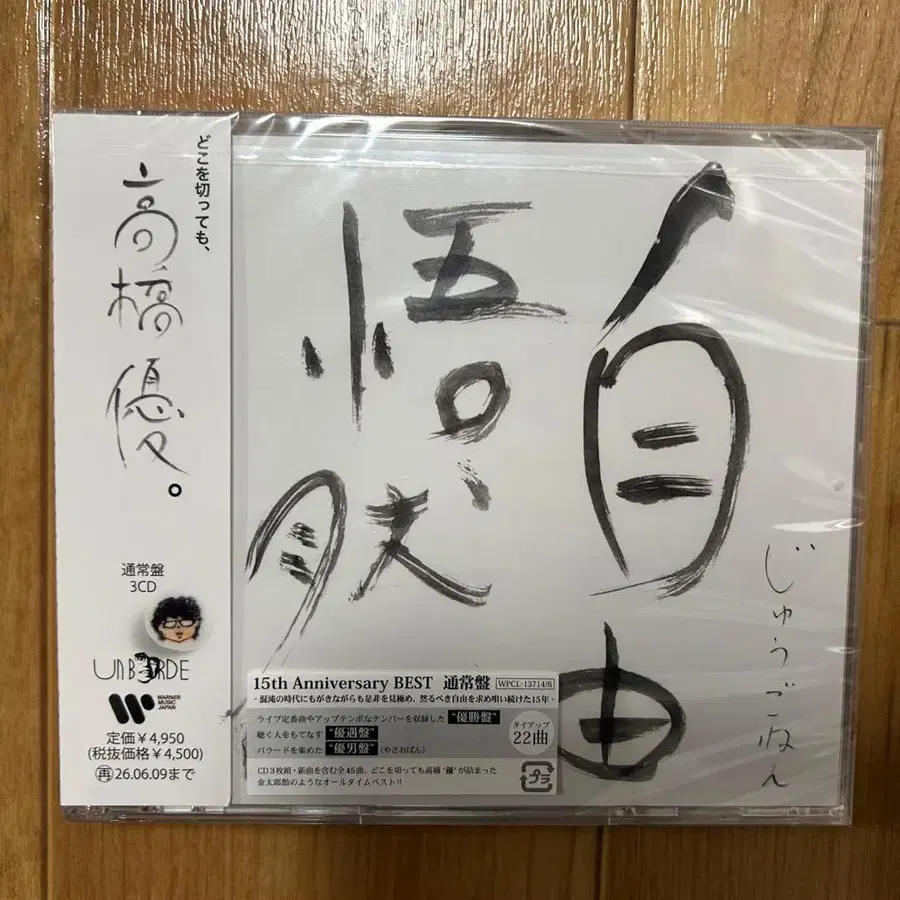 どこを切っても、
高橋優。
通常盤
3CD
unBORDE
WARNER
MUSIC
JAPAN
定価¥4,950
(税抜価格¥4,500)
再26.06.09まで
自由
悟然
じゅうごねん
15th Anniversary BEST 通常盤 WPCL-13714/6
- 混沌の時代にもがきながらも是非を見極め、然るべき自由を求め唄い続けた15年 -
ライブ定番曲やアップテンポなナンバーを収録した "優勝盤"
聴く人をもてなす "優遇盤"
バラードを集めた "優男盤" (やさおばん)
タイアップ
22曲
CD3枚組・新曲を含む全45曲、どこを切っても高橋"優"が詰まった
金太郎飴のようなオールタイムベスト!!
プラ